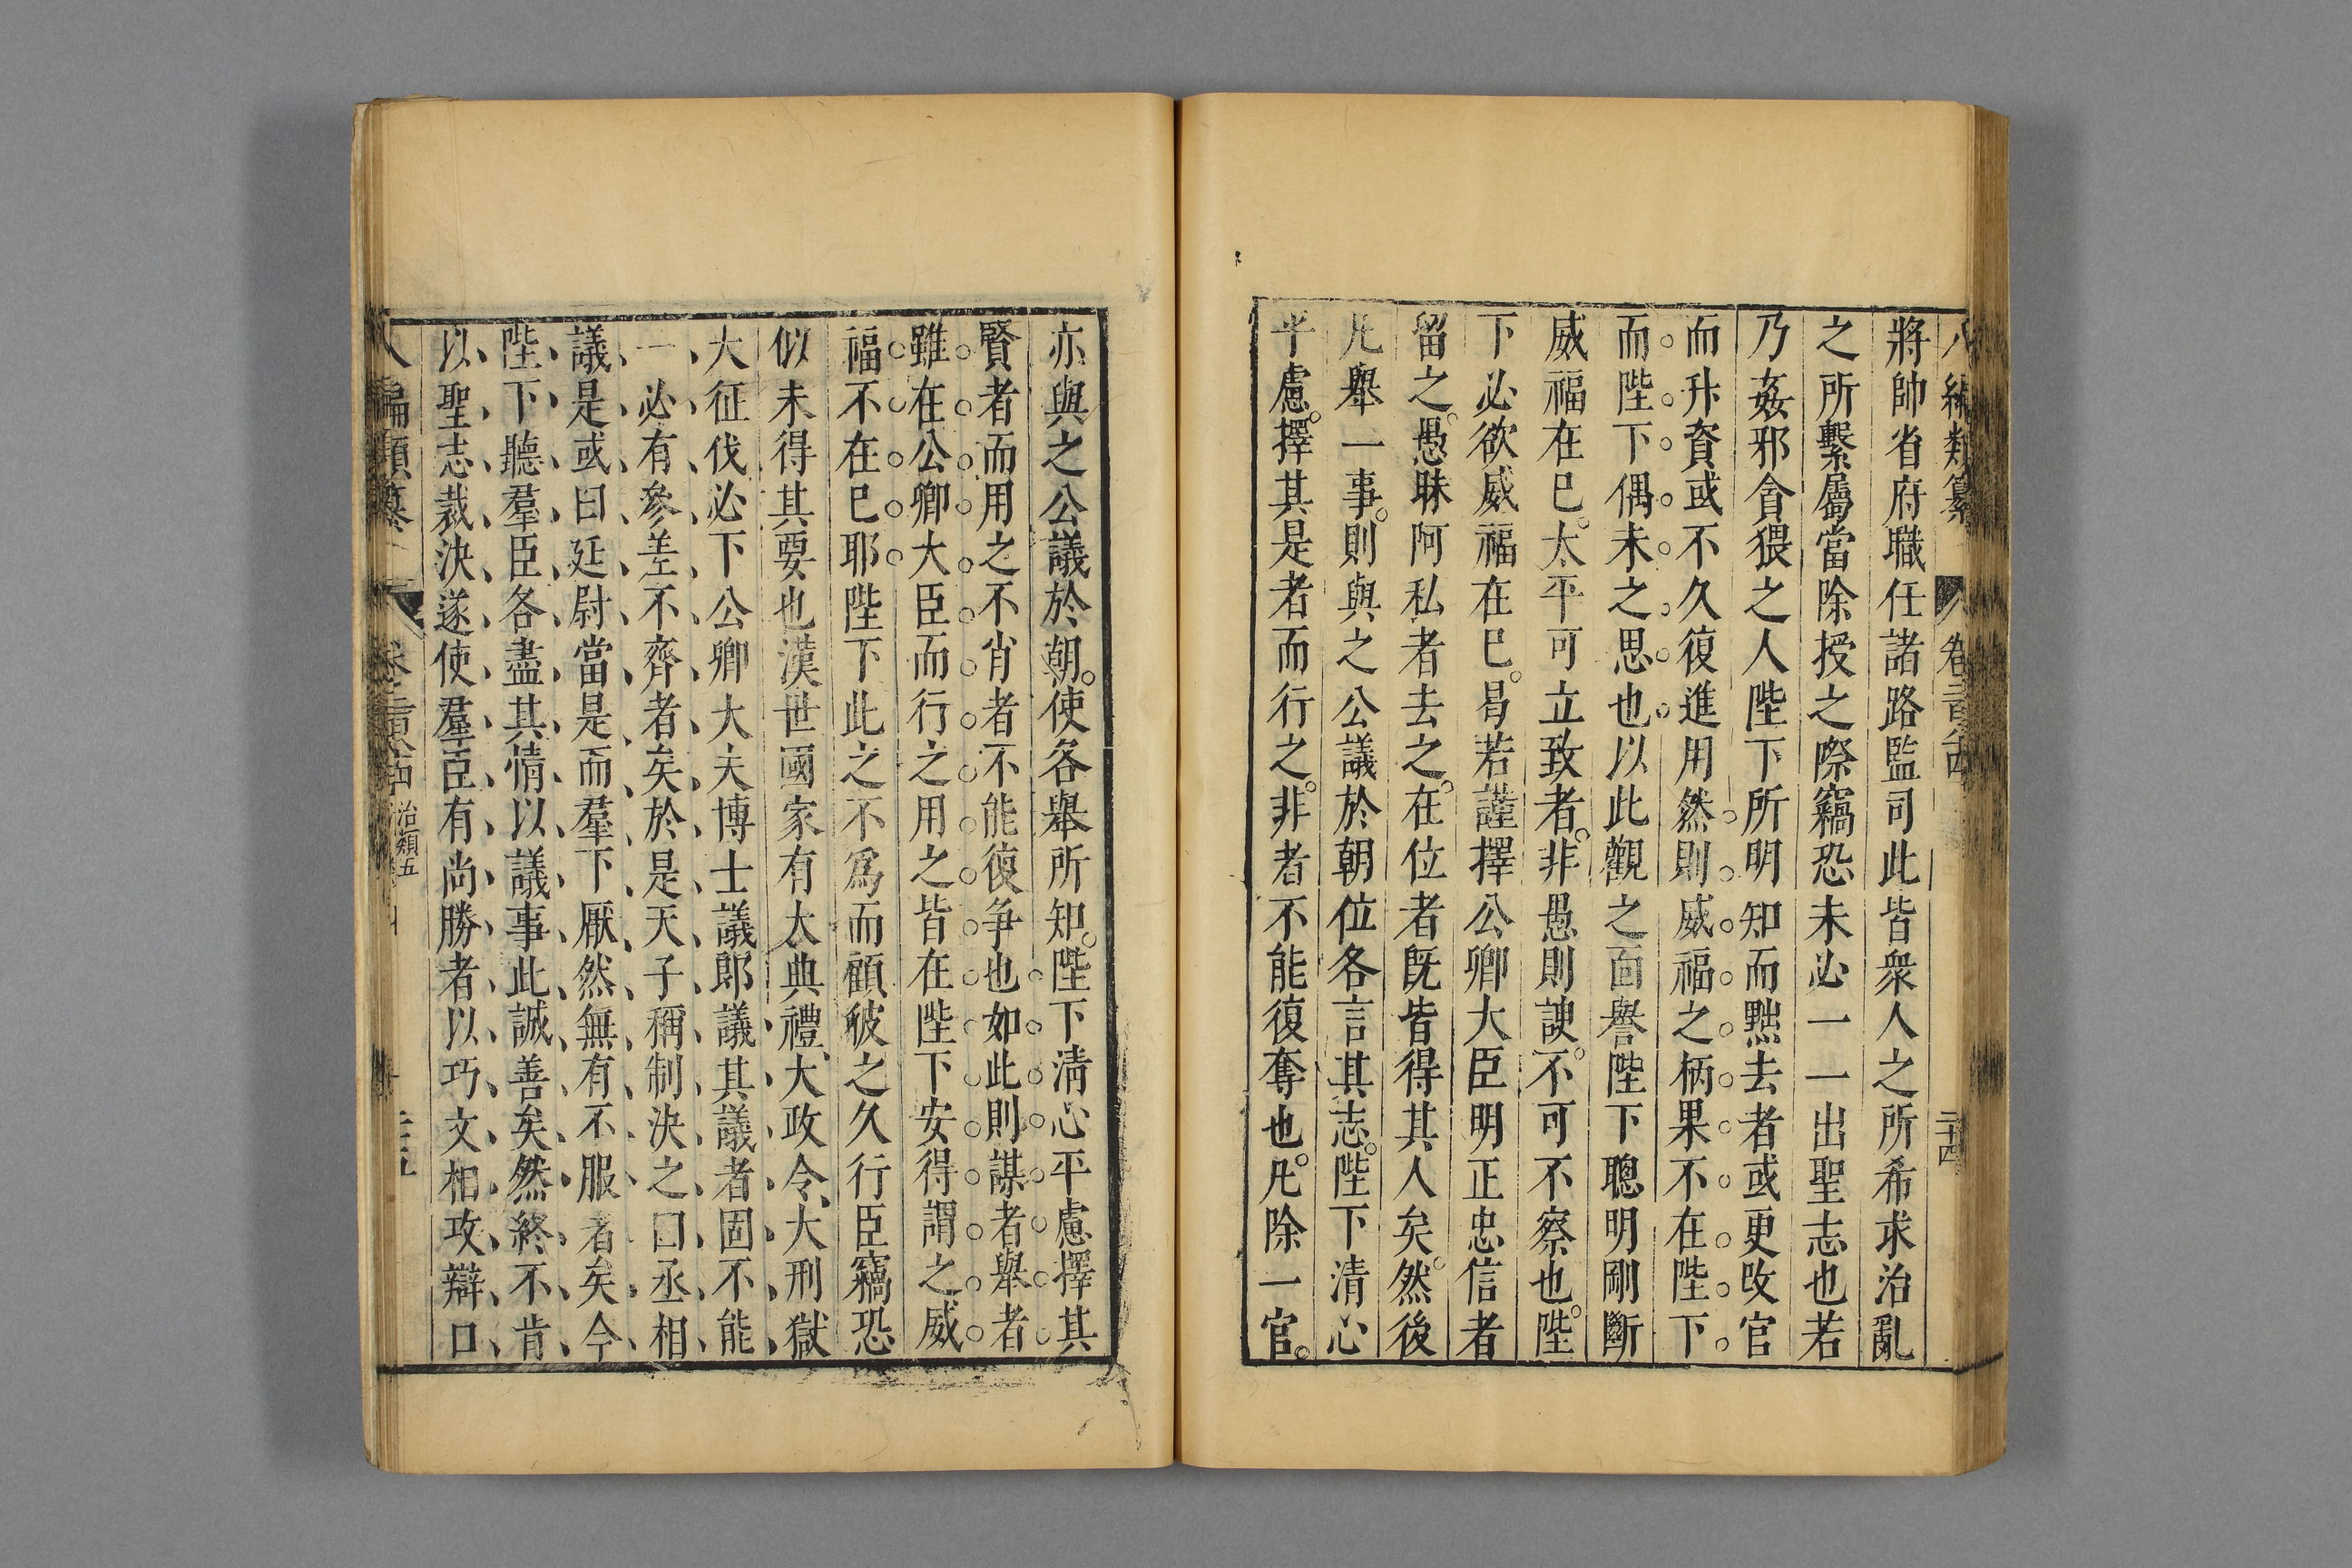 八編類纂 卷二百八古 二十四
將帥省府職任諸路監司此皆衆人之所希求治亂
之所繫屬當除授之際竊恐未必一一出聖志也若
乃姦邪貪猥之人陛下所明知而黜去者或更改官
而升資或不久復進用然則威福之柄果不在陛下
而陛下偶未之思也以此觀之面譽陛下聰明剛斷
威福在巳太平可立致者非愚則諛不可不察也陛
下必欲威福在巳曷若謹擇公卿大臣明正忠信者
留之愚昧阿私者去之在位者既皆得其人矣然後
凡舉一事則與之公議於朝位各言其志陛下清心
平慮擇其是者而行之非者不能復奪也凡除一官
亦與之公議於朝使各舉所知陛下淸心平慮擇其
賢者而用之不肖者不能復爭也如此則謀者舉者
雖在公卿大臣而行之用之皆在陛下安得謂之威
福不在巳耶陛下此之不爲而顧彼之久行臣竊恐
似未得其要也漢世國家有大典禮大政令大刑獄
大征伐必下公卿大夫博士議郎議其議者固不能
一必有參差不齊者矣於是天子稱制決之曰丞相
議是或曰廷尉當是而羣下厭然無有不服者矣今
陛下聽羣臣各盡其情以議事此誠善矣然終不肯
以聖志裁決遂使羣臣有尚勝者以巧文相攻辯口
八編類纂 治類五